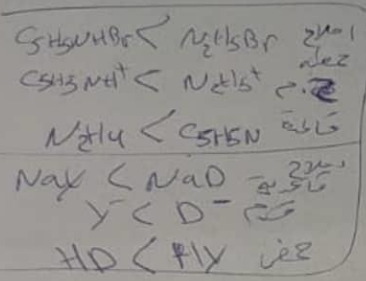 C5H5NHBr < N2H5Br املاح حمضية
C5H5NH+ < N2H5+ ح.م
N2H4 < C5H5N قاعدة
NaY < NaD املاح قاعدية
Y- < D- ق.م
HD < HY حمض